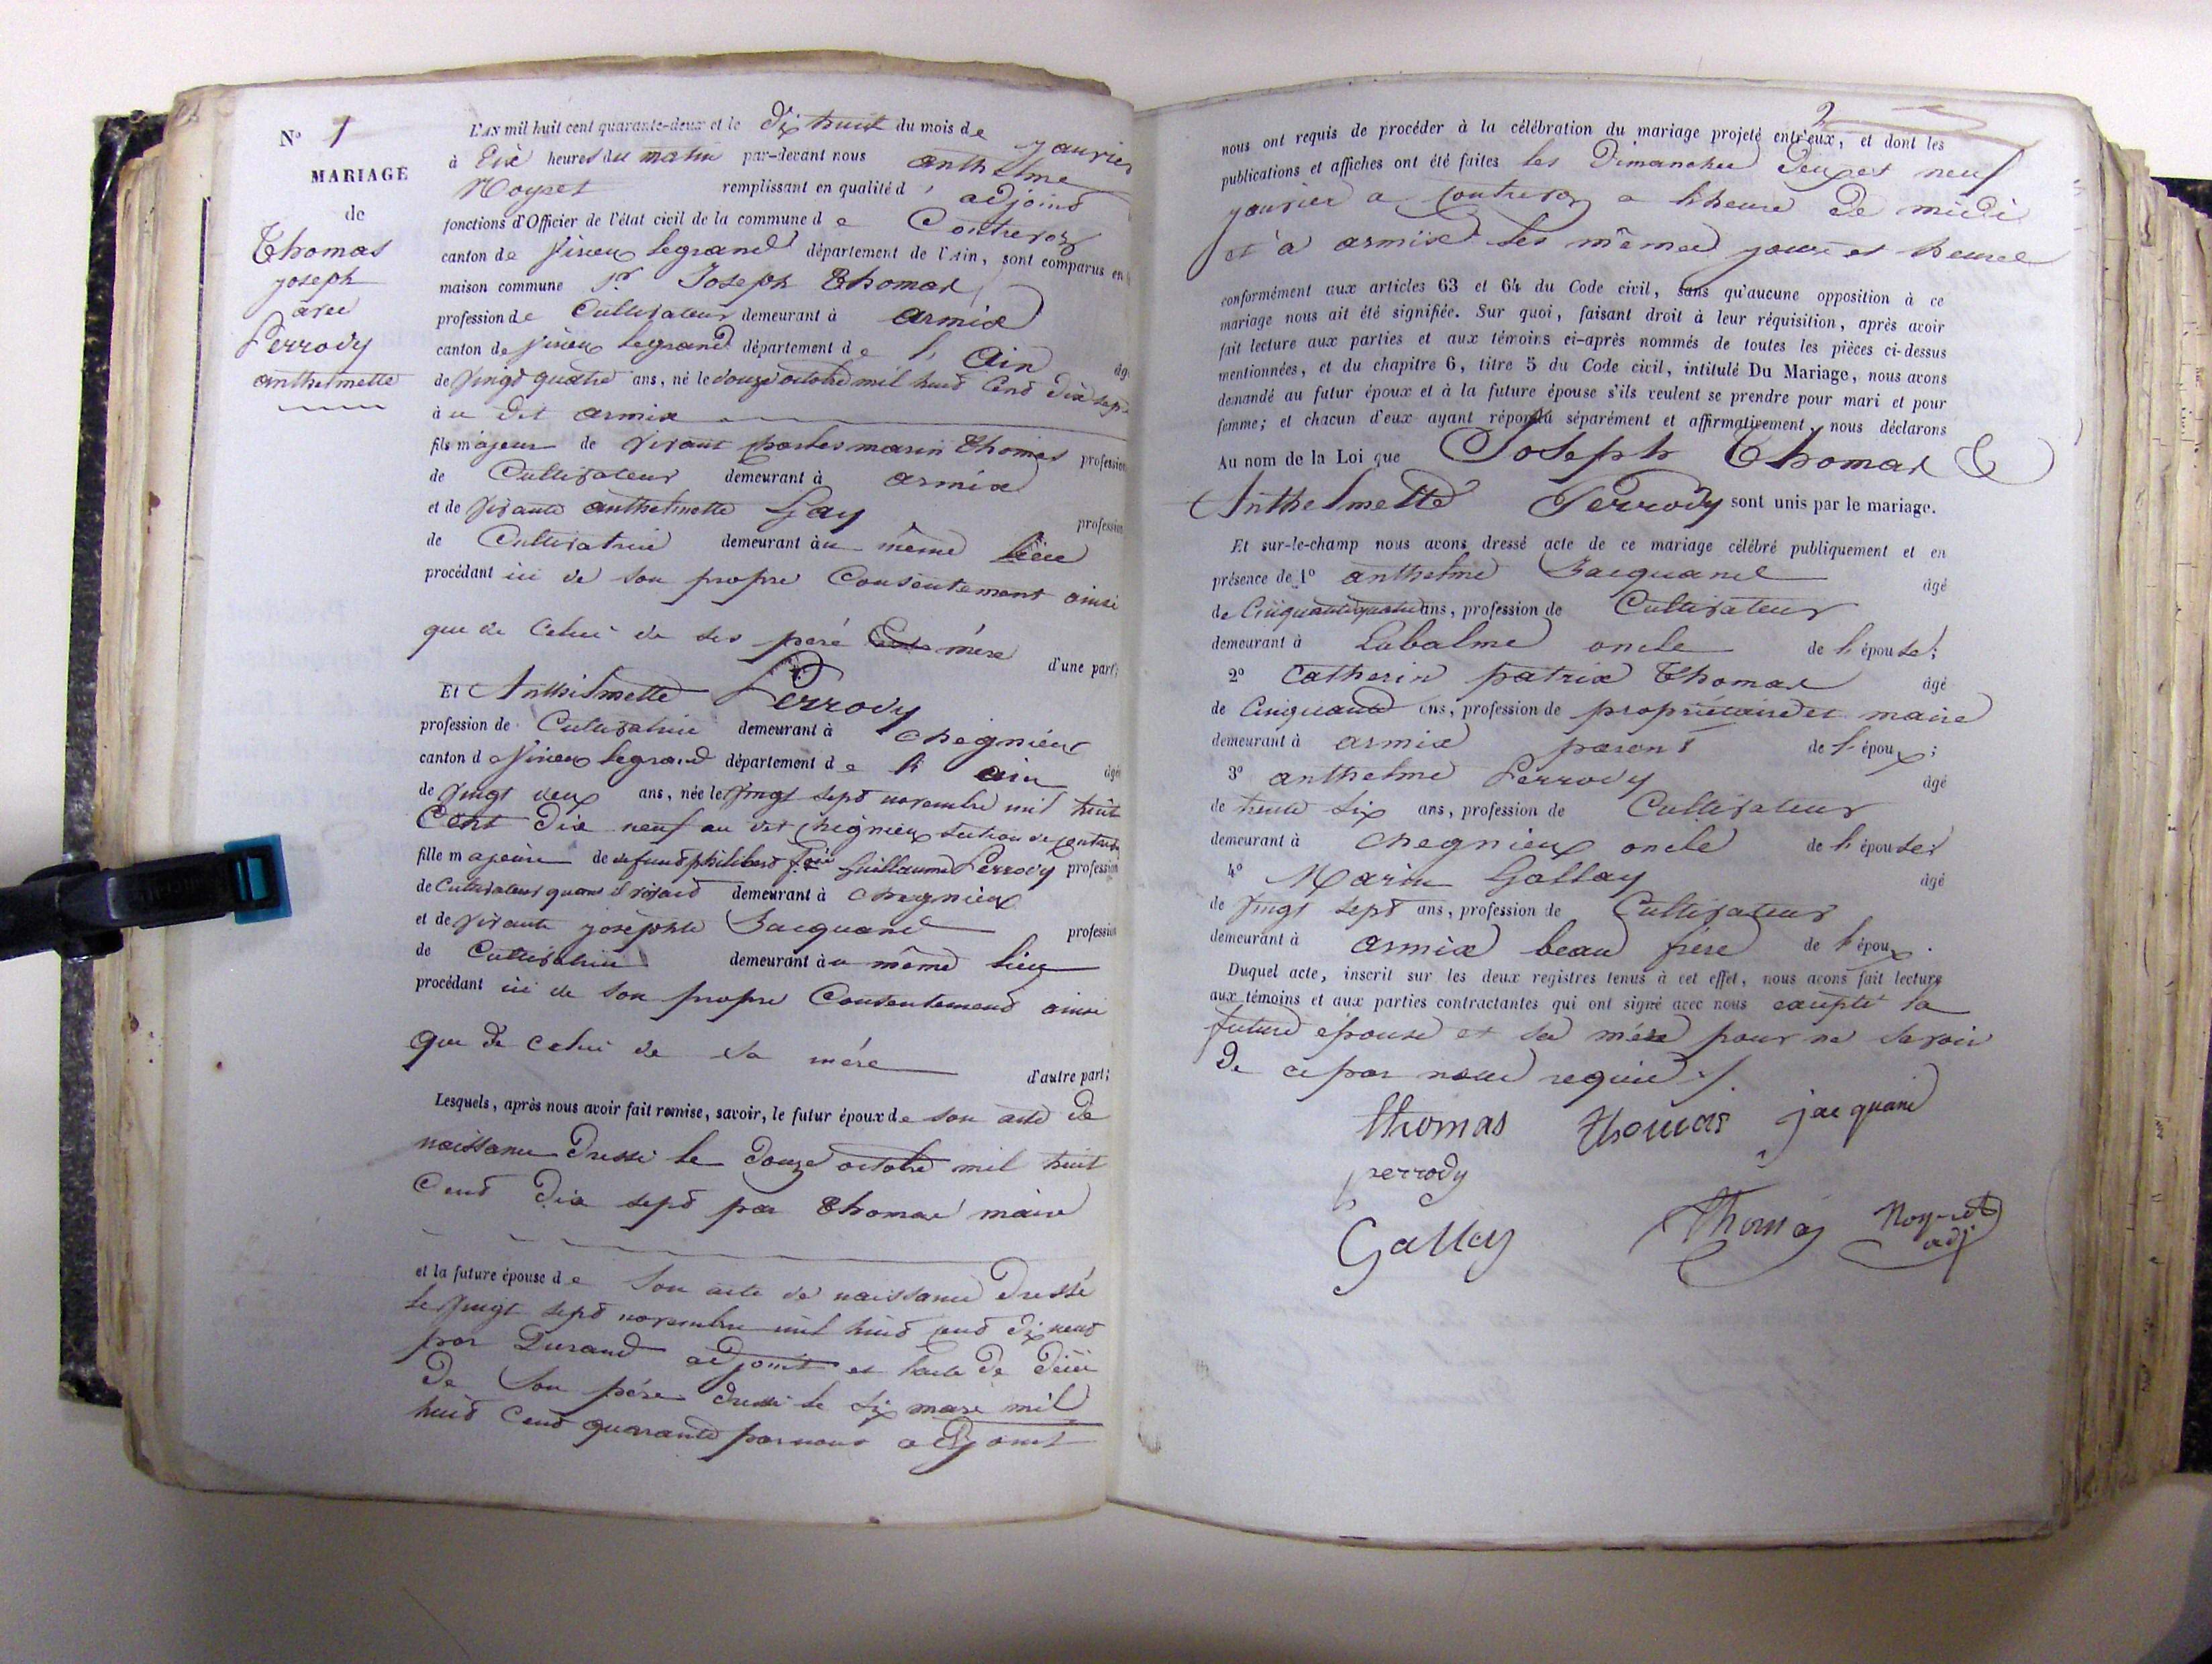 N° 1
MARIAGE
de
Thomas
joseph
avec
Perrody
anthelmette
L'AN mil huit cent quarante-deux et le dix huit du mois de janvier
à dix heures du matin par-devant nous anthelme
Noyret remplissant en qualité d'adjoint
fonctions d'Officier de l'état civil de la commune de Contrevoz
canton de Virieu legrand département de l'Ain, sont comparus en
maison commune Sr Joseph Thomas
profession de Cultivateur demeurant à armix
canton de Virieu legrand département de l'Ain âgé
de Vingt quatre ans, né le douze octobre mil huit Cent dix sept
à u dit armix
fils majeur de vivant marin Thomas profession
de Cultivateur demeurant à armix
et de vivante anthelmette Gay profession
de Cultivatrice demeurant àu même lieu
procédant ici de son propre Consentement ainsi
que de Celui de ses père et mère d'une part;
Et Anthelmette Perrody
profession de Cultivatrice demeurant à chegnieu
canton de Virieu legrand département de l'ain âgée
de Vingt deux ans, née le Vingt sept novembre mil huit
Cent dix neuf au dit chegnieu section de contrevoz
fille majeure de defunt philibert feu Guillaume Perrody profession
de Cultivateur quand il vivait demeurant à chegnieux
et de vivante josephte Jacquand profession
de Cultivatrice demeurant àu même lieu
procédant ici de son propre Consentement ainsi
que de celui de sa mére d'autre part;
Lesquels, après nous avoir fait remise, savoir, le futur époux de son acte de
naissance dressé le douze octobre mil huit
Cent dix sept par Thomas maire
et la future épouse de son acte de naissance dressé
le Vingt sept novembre mil huit cent dix neuf
par Durand adjoint et l'acte de décè
de son pére dressé le six mars mil
huit Cent quarante par nous adjoint
2
nous ont requis de procéder à la célébration du mariage projeté entr'eux, et dont les
publications et affiches ont été faites les Dimanches deux et neuf
janvier a Contrevoz a l'heure de midi
et à armix les mêmes jours et heures
conformément aux articles 63 et 64 du Code civil, sans qu'aucune opposition à ce
mariage nous ait été signifiée. Sur quoi, faisant droit à leur réquisition, après avoir
fait lecture aux parties et aux témoins ci-après nommés de toutes les pièces ci-dessus
mentionnées, et du chapitre 6, titre 5 du Code civil, intitulé Du Mariage, nous avons
demandé au futur époux et à la future épouse s'ils veulent se prendre pour mari et pour
femme; et chacun d'eux ayant répondu séparément et affirmativement, nous déclarons
Au nom de la Loi que Joseph Thomas &
Anthelmette Perrody sont unis par le mariage.
Et sur-le-champ nous avons dressé acte de ce mariage célébré publiquement et en
présence de 1° anthelme Jacquand âgé
de Cinquante quatre ans, profession de Cultivateur
demeurant à Labalme oncle de l'épouse;
2° Catherin patrix Thomas âgé
de Cinquante ans, profession de propriétaire et maire
demeurant à armix parent de l'époux;
3° anthelme Perrody âgé
de trente six ans, profession de Cultivateur
demeurant à chegnieux oncle de l'épouse;
4° Marin Gallay âgé
de Vingt sept ans, profession de Cultivateur
demeurant à armix beau frére de l'époux.
Duquel acte, inscrit sur les deux registres tenus à cet effet, nous avons fait lecture
aux témoins et aux parties contractantes qui ont signé avec nous excepté la
future épouse et sa mére pour ne savoir
de ce par nous requis ./.
thomas thomas jacquand
perrody
Gallay Thomas Noyret
adj